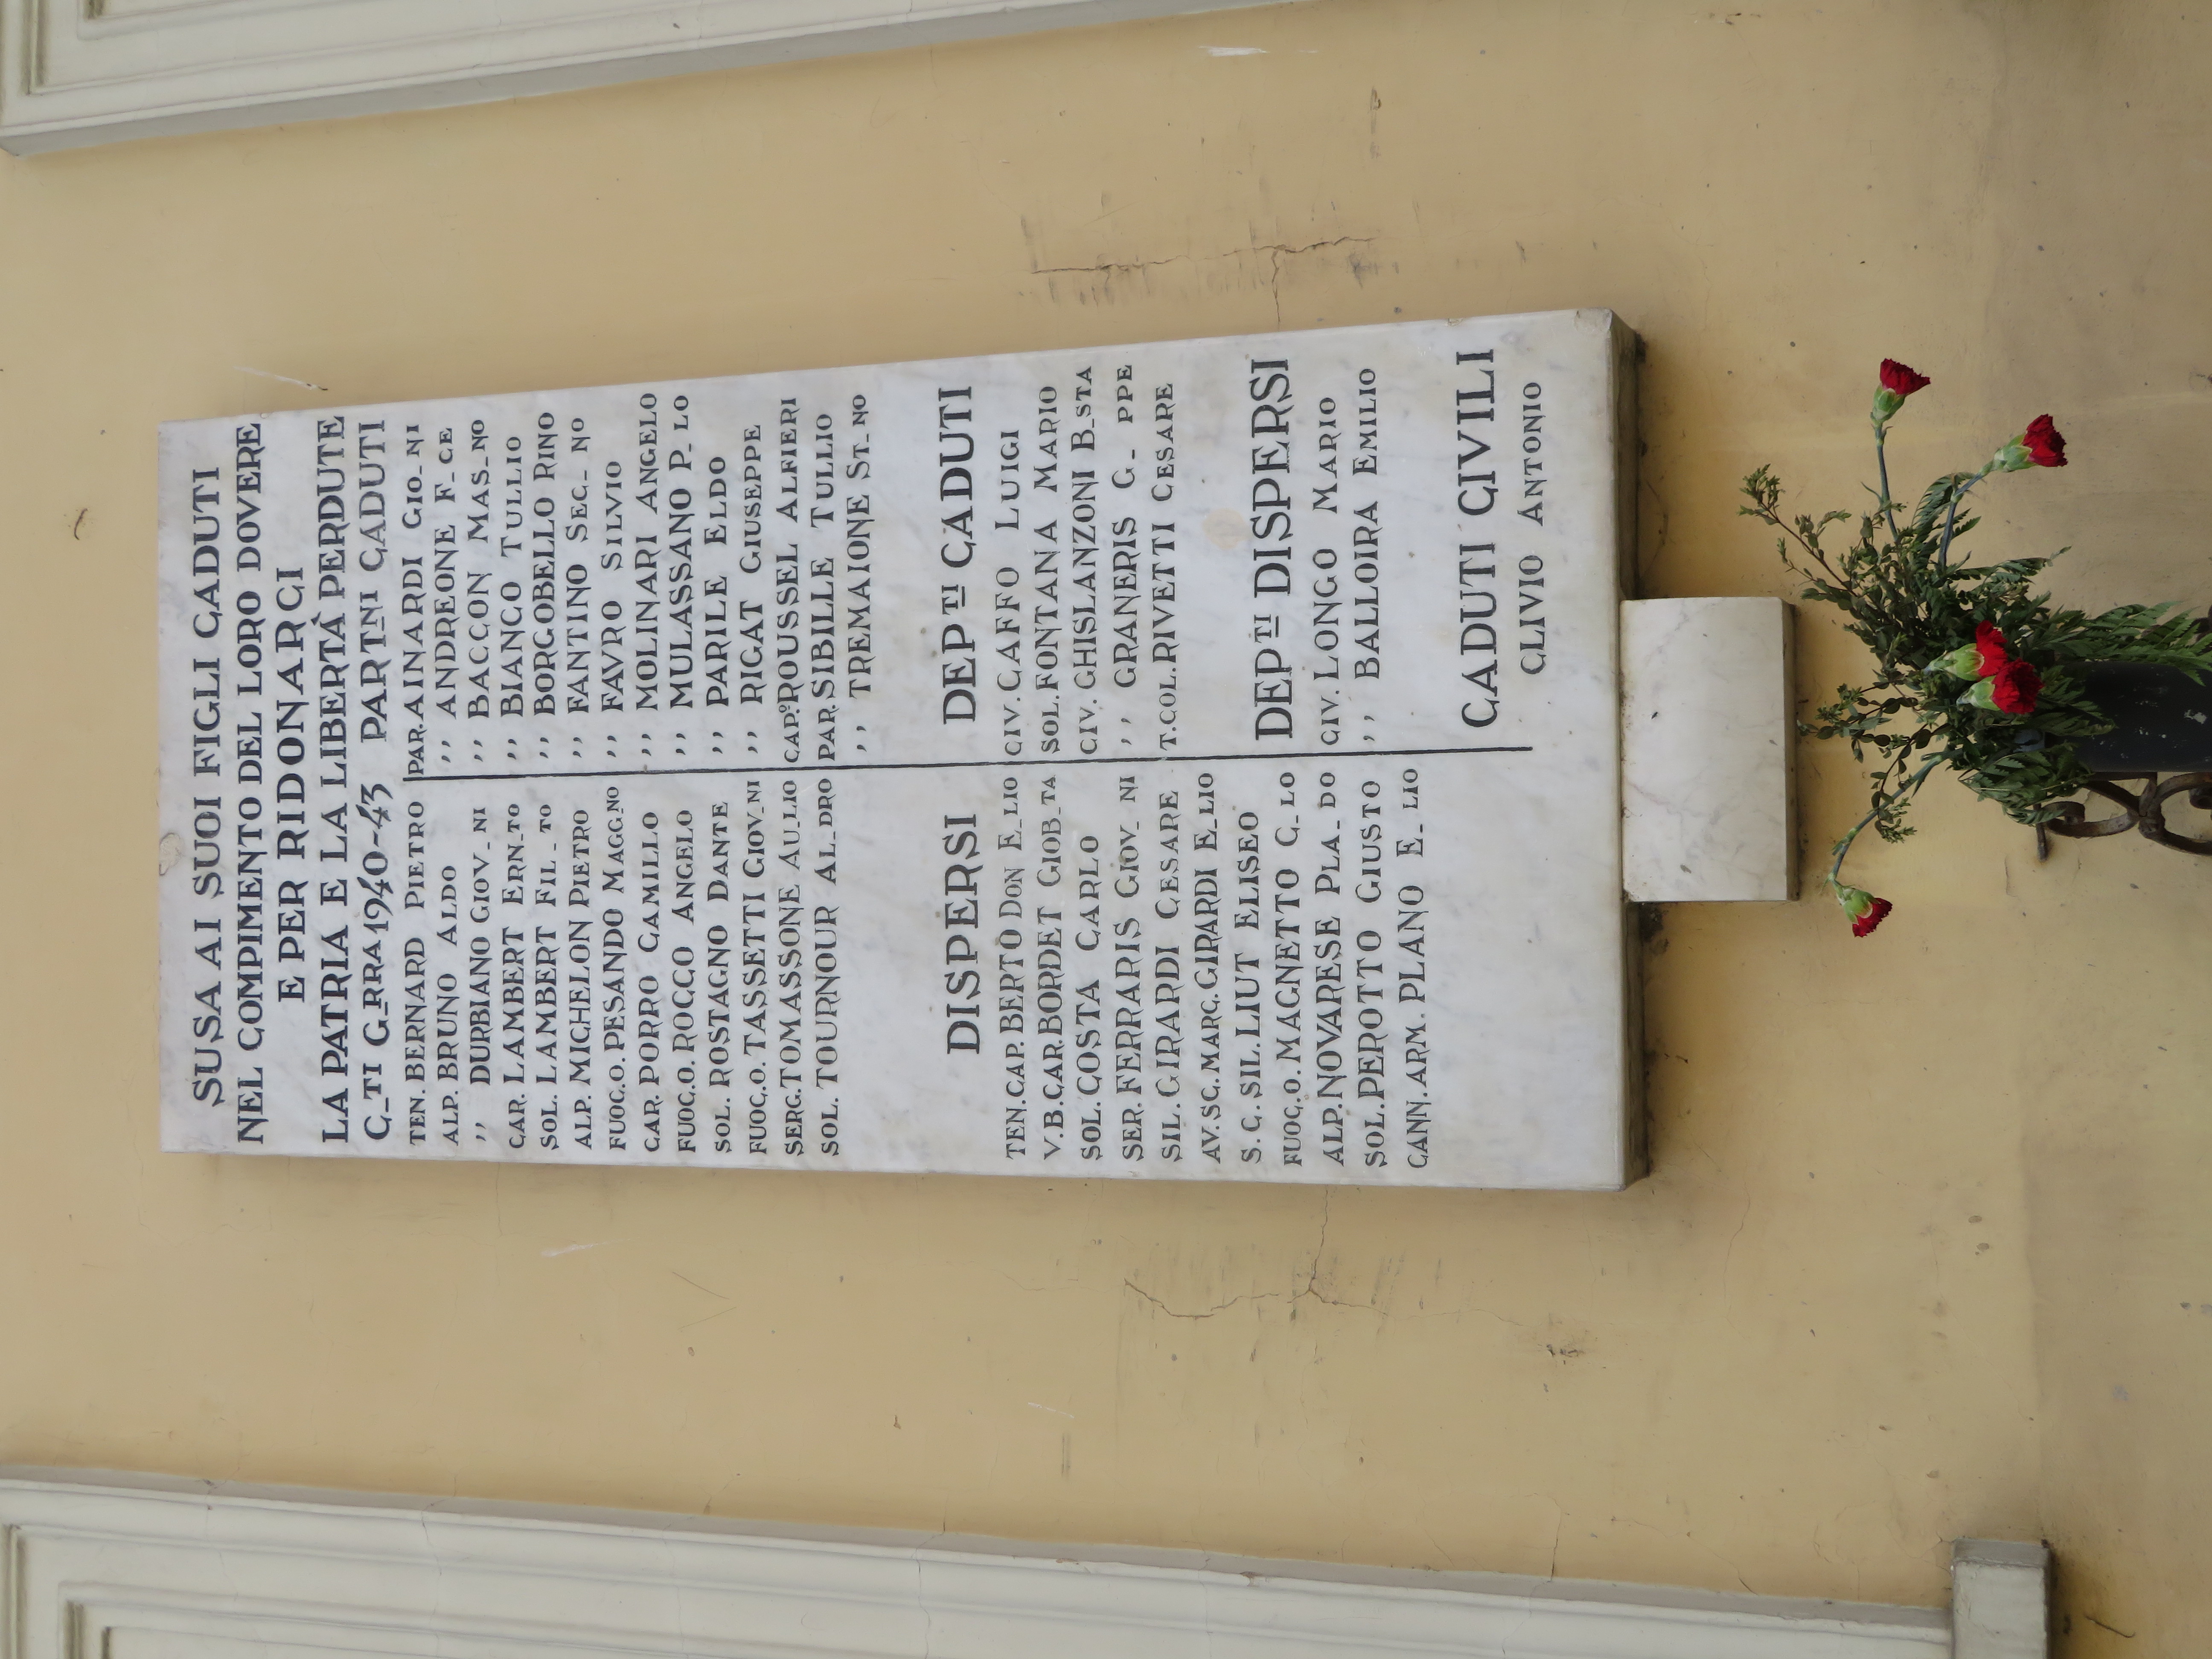 SUSA AI SUOI FIGLI CADUTI
NEL COMPIMENTO DEL LORO DOVERE
E PER RIDONARCI
LA PATRIA E LA LIBERTÀ PERDUTE
C_TI G_RRA 1940-43
TEN. BERNARD PIETRO
ALP. BRUNO ALDO
,, DURBIANO GIOV_NI
CAR. LAMBERT ERN_TO
SOL. LAMBERT FIL_TO
ALP. MICHELON PIETRO
FUOC.O. PESANDO MAGG.NO
CAR. PORRO CAMILLO
FUOC.O. ROCCO ANGELO
SOL. ROSTAGNO DANTE
FUOC.O. TASSETTI GIOV_NI
SERG. TOMASSONE AU_LIO
SOL. TOURNOUR AL_DRO
DISPERSI
TEN. CAP. BERTO DON E_LIO
V.B. CAR. BORDET GIOB_TA
SOL. COSTA CARLO
SER. FERRARIS GIOV_NI
SIL. GIRARDI CESARE
AV. SC. MARC. GIRARDI E_LIO
S.C. SIL. LIUT ELISEO
FUOC.O. MAGNETTO C_LO
ALP. NOVARESE PLA_DO
SOL. PEROTTO GIUSTO
CANN. ARM. PLANO E_LIO
PARTNI CADUTI
PAR. AINARDI GIO_NI
,, ANDREONE F_CE
,, BACCON MAS_NO
,, BIANCO TULLIO
,, BORGOBELLO RINO
,, FANTINO SEC_NO
,, FAVRO SILVIO
,, MOLINARI ANGELO
,, MULASSANO P_LO
,, PARILE ELDO
,, RIGAT GIUSEPPE
CAP.º ROUSSEL ALFIERI
PAR. SIBILLE TULLIO
,, TREMAIONE ST_NO
DEPTI CADUTI
CIV. CAFFO LUIGI
SOL. FONTANA MARIO
CIV. GHISLANZONI B_STA
,, GRANERIS G_PPE
T. COL. RIVETTI CESARE
DEPTI DISPERSI
CIV. LONGO MARIO
,, BALLOIRA EMILIO
CADUTI CIVILI
CLIVIO ANTONIO